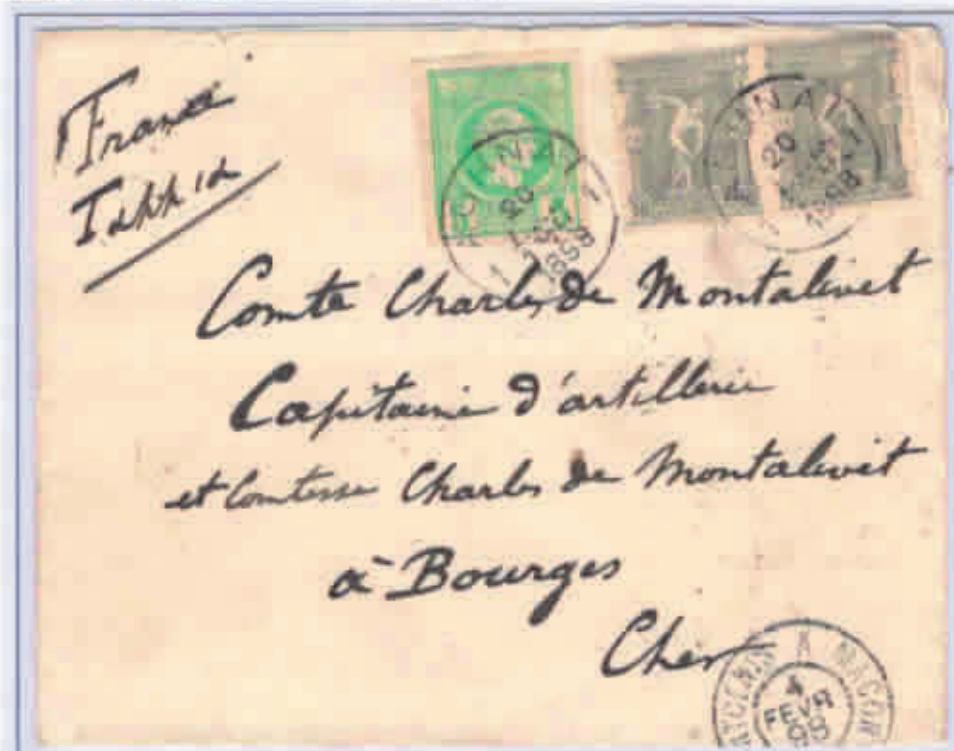 France
Γαλλία
ΑΘΗΝΑΙ
20
1898
ΑΘΗΝΑΙ
20
1898
Comte Charles de Montalivet
Capitaine d'artillerie
et Comtesse Charles de Montalivet
à Bourges
Cher
A MACON
4
FEVR
98